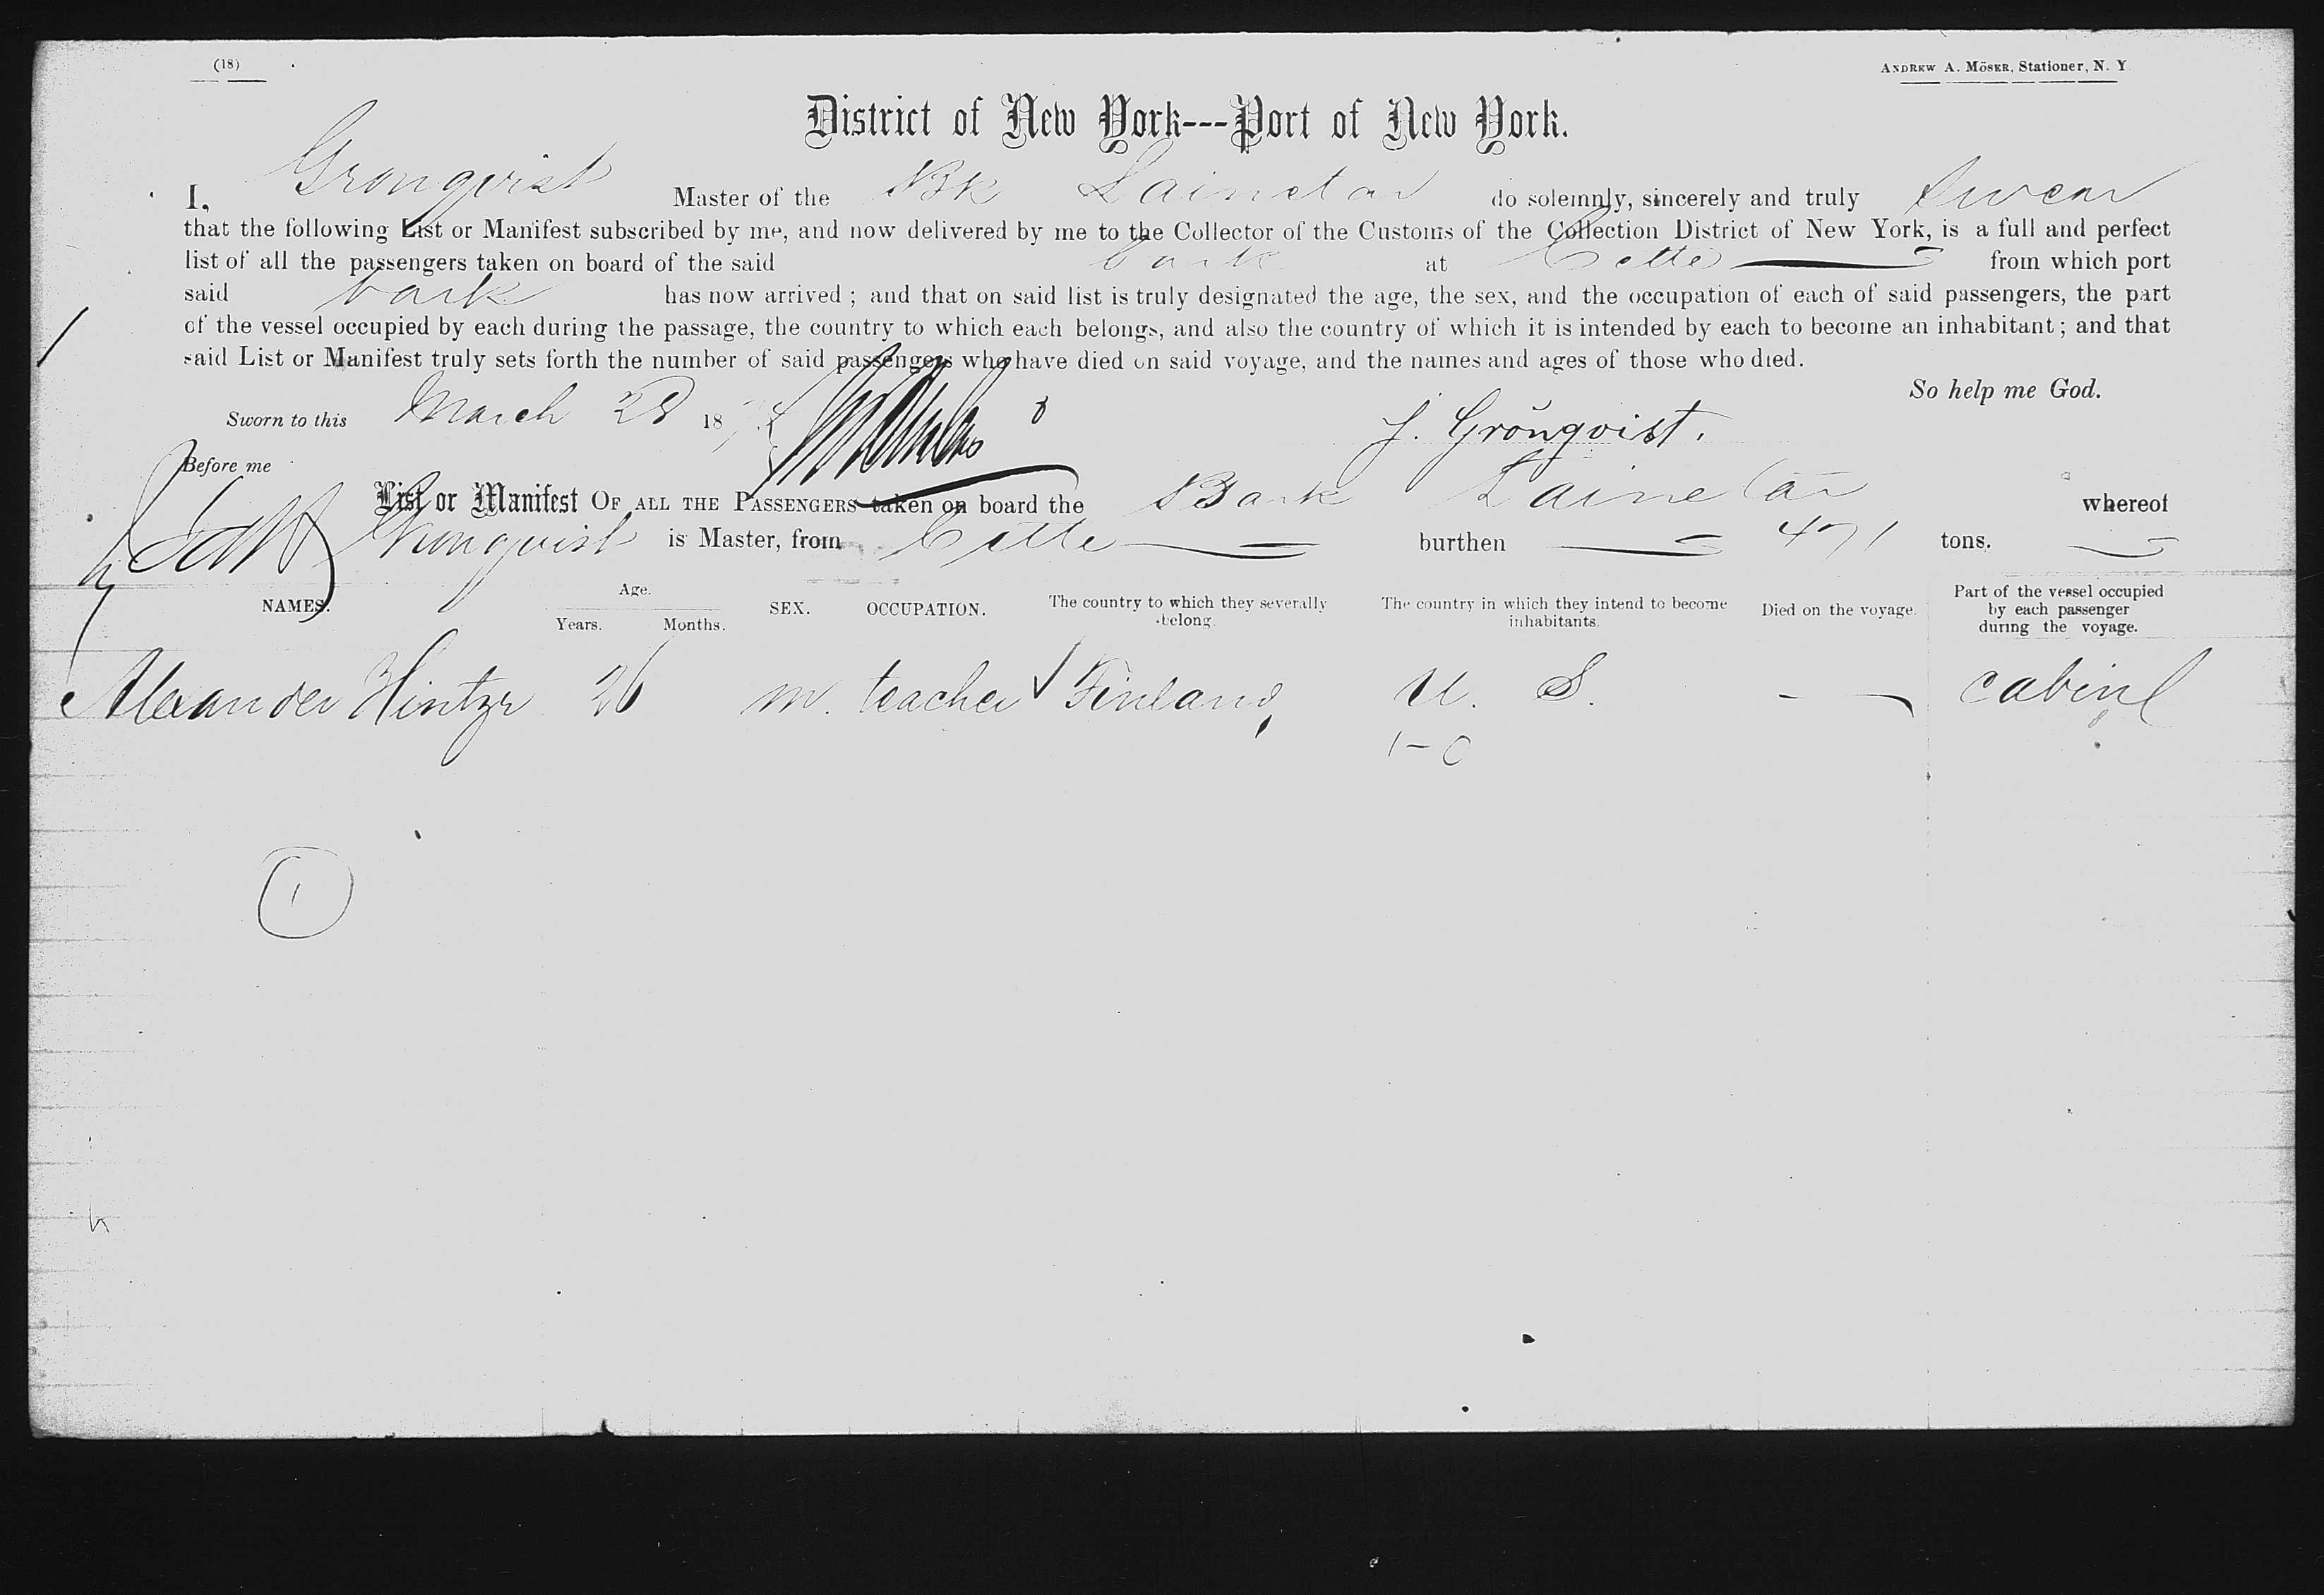 (18)
ANDREW A. MÖSER, Stationer, N. Y
District of New York---Port of New York.
I, Gronqvist Master of the Bk Lainetar do solemnly, sincerely and truly swear
that the following List or Manifest subscribed by me, and now delivered by me to the Collector of the Customs of the Collection District of New York, is a full and perfect
list of all the passengers taken on board of the said bark at Cette from which port
said bark has now arrived ; and that on said list is truly designated the age, the sex, and the occupation of each of said passengers, the part
of the vessel occupied by each during the passage, the country to which each belongs, and also the country of which it is intended by each to become an inhabitant ; and that
said List or Manifest truly sets forth the number of said passengers who have died on said voyage, and the names and ages of those who died.
So help me God.
Sworn to this March 28 18
J. Grönqvist.
Before me
List or Manifest OF ALL THE PASSENGERS taken on board the Bark Lainetar whereof
Gronquist is Master, from Cette burthen 471 tons.
NAMES. Age. Years. Months. SEX. OCCUPATION. The country to which they severally belong. The country in which they intend to become inhabitants. Died on the voyage. Part of the vessel occupied by each passenger during the voyage.
Alexander Hintze 26 m. teacher Finland U. S. — cabin
1-0
1